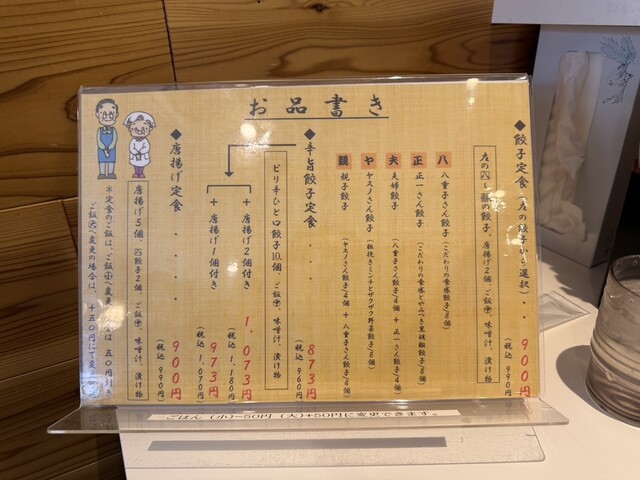 お品書き
◆餃子定食(左の餃子から選択)・・900円
(税込 990円)
八 八重子さん餃子(こだわりの食感餃子/8個)
正 正一さん餃子(こだわりの食感とやみつき黒胡椒餃子/8個)
夫 夫婦餃子(八重子さん餃子/4個 + 正一さん餃子/4個)
ヤ ヤスノさん餃子(粗挽きミンチとザクザク野菜餃子/8個)
親子餃子(ヤスノさん餃子/4個 + 八重子さん餃子/4個)
◆辛旨餃子定食・・・873円
(税込 960円)
ピリ辛ひと口餃子10個、ご飯㊥、味噌汁、漬け物
+ 唐揚げ2個付き 1,073円
(税込 1,180円)
+ 唐揚げ1個付き 973円
(税込 1,070円)
◆唐揚げ定食・・・・900円
(税込 990円)
唐揚げ5個、㊇餃子2個、ご飯㊥、味噌汁、漬け物
ごはん(小)−50円(大)+50円に変更できます。